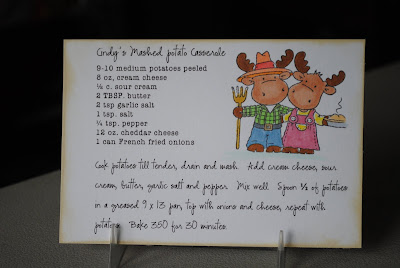 Cindy's Mashed potato Casserole
9-10 medium potatoes peeled
8 oz, cream cheese
½ c. sour cream
2 TBSP. butter
2 tsp garlic salt
1 tsp. salt
¼ tsp. pepper
12 oz. cheddar cheese
1 can French fried onions
Cook potatoes till tender, drain and mash. Add cream cheese, sour
cream, butter, garlic salt and pepper. Mix well. Spoon ½ of potatoes
in a greased 9 x 13 pan, top with onions and cheese, repeat with
potatoes. Bake 350 for 30 minutes